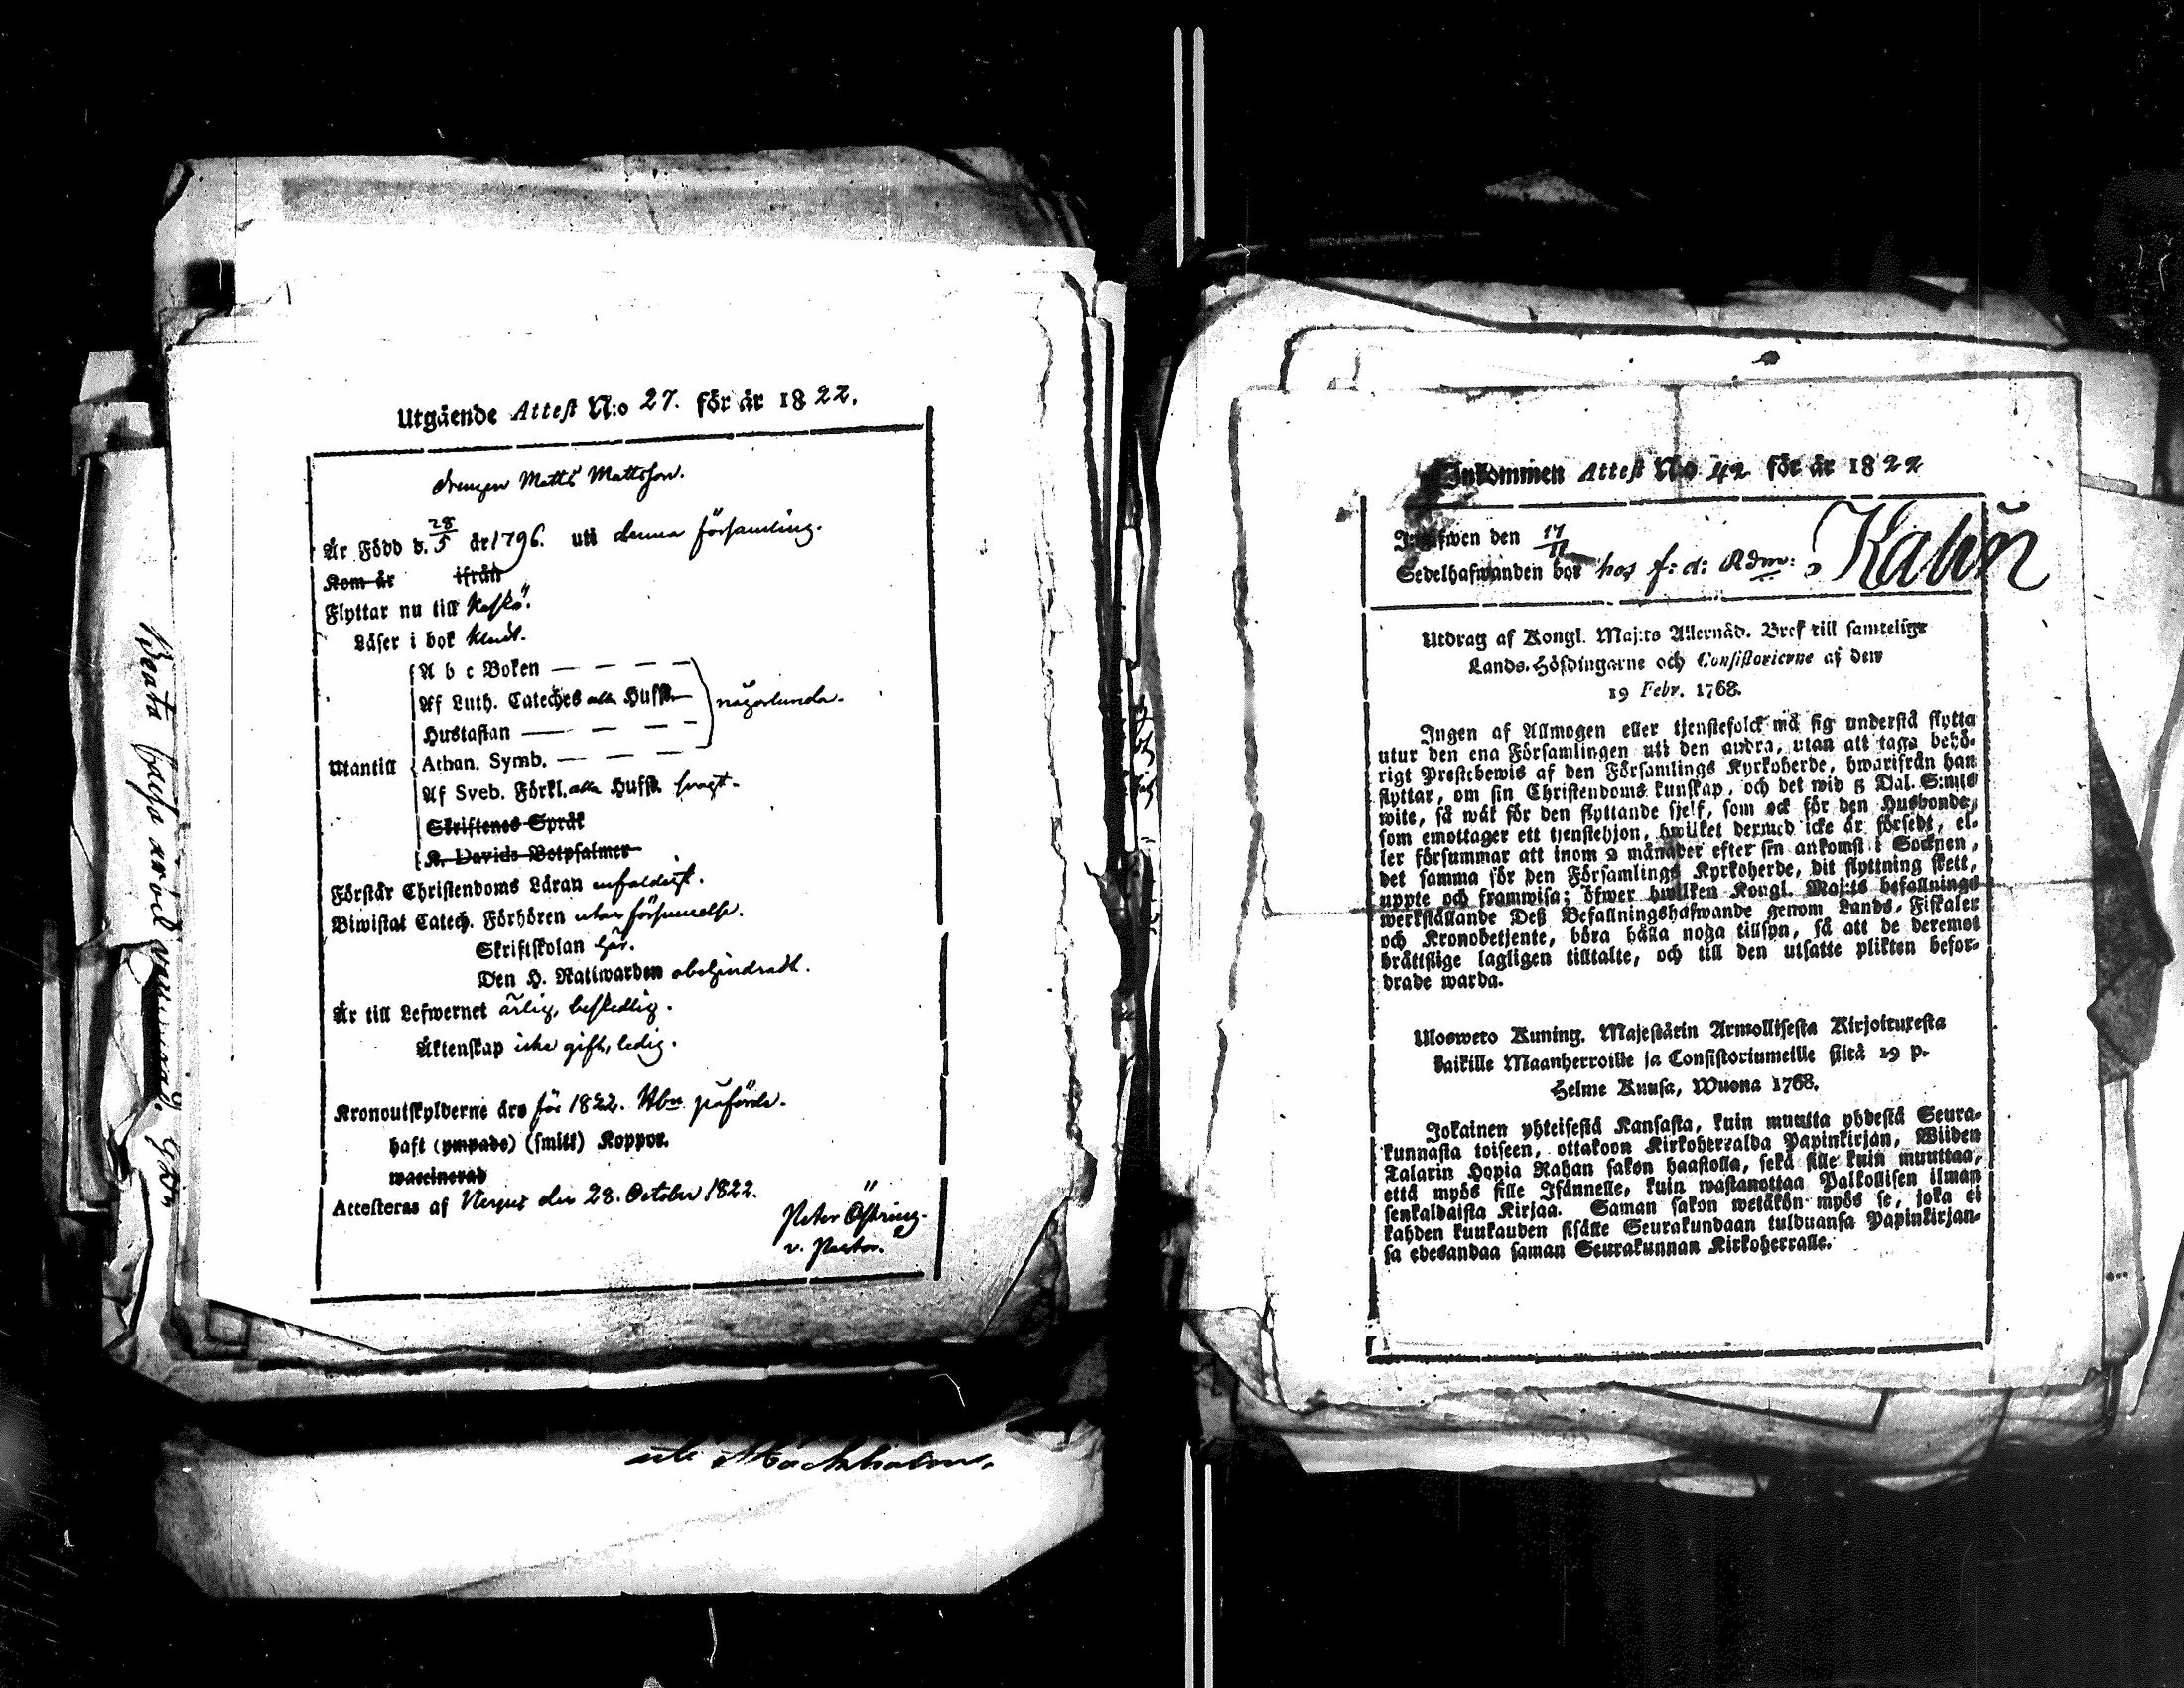 Utgående Attest N:o 27. för år 1822.
drengen Matts Mattsson.
Är Född d. 28/5 år 1796. uti denna församling.
Kom år ifrån
Flyttar nu till Kaskö.
Läser i bok klent.
A b c Boken — — —
Af Luth. Cateches alla Hufst. — någorlunda.
Hustaflan — — —
Utantill Athan. Symb. — — —
Af Sveb. Förkl. alla Hufst. svagt.
Skriftenes Språk
K. Davids Botpsalmer
Förstår Christendoms Läran enfaldigt.
Biwistat Catech. Förhören utan försummelse.
Skriftskolan här.
Den H. Nattwarden obehindradt.
Är till Lefwernet ärlig, beskedlig.
Äktenskap icke gift, ledig.
Kronoutskylderne äro för 1822. påförde.
haft (ympade) (smitt) Koppor.
waccinerad
Attesteras af den 28. October 1822.
Peter Östring.
v. Pastor.
Beata
Stockholm.
Inkommen Attest N:o 42 för år 1822
Inlefwen den 17/11
Sedelhafwanden bor hos f: d: Rdm:
Utdrag af Kongl. Maj:ts Allernåd. Bref till samtelige
Lands-Höfdingarne och Consistorierne af den
19 Febr. 1768.
Ingen af Allmogen eller tjenstefolck må sig understå flytta
utur den ena Församlingen uti den andra, utan att taga behö-
rigt Prestebewis af den Församlings Kyrkoherde, hwarifrån han
flyttar, om sin Christendoms kunskap, och det wid 5 Dal. S:mts
wite, så wäl för den flyttande sjelf, som ock för den Husbonde,
som emottager ett tjenstehjon, hwilket dermed icke är försedt, el-
ler försummar att inom 2 månader efter sin ankomst i Socknen,
det samma för den Församlings Kyrkoherde, dit flyttning skett,
uppte och framwisa; öfwer hwilken Kongl. Maj:ts befallnings
werkställande Deß Befallningshafwande genom Lands-Fiskaler
och Kronobetjente, böra hålla noga tillsyn, så att de deremot
bråttslige lagligen tilltalte, och till den utsatte plikten befor-
drade warda.
Ulosweto Kuning. Majestätin Armollisesta Kirjoituxesta
kaikille Maanherroille ja Consistoriumeille siitä 19 p.
Helme Kuusa, Wuona 1768.
Jokainen yhteisestä Kansasta, kuin muutta yhdestä Seura-
kunnasta toiseen, ottakoon Kirkoherralda Papinkirjan, Wiiden
Talarin Hopia Rahan sakon haastolla, sekä sille kuin muuttaa,
että myös sille Isännelle, kuin wastanottaa Palkollisen ilman
senkaldaista Kirjaa. Saman sakon wetäkön myös se, joka ei
kahden kuukauden sisälle Seurakundaan tulduansa Papinkirjan-
sa edesandaa saman Seurakunnan Kirkoherralle.